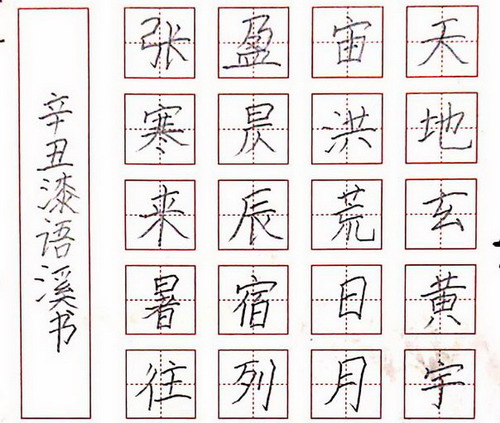 天地玄黄宇
宙洪荒日月
盈昃辰宿列
张寒来暑往
辛丑漆语溪书